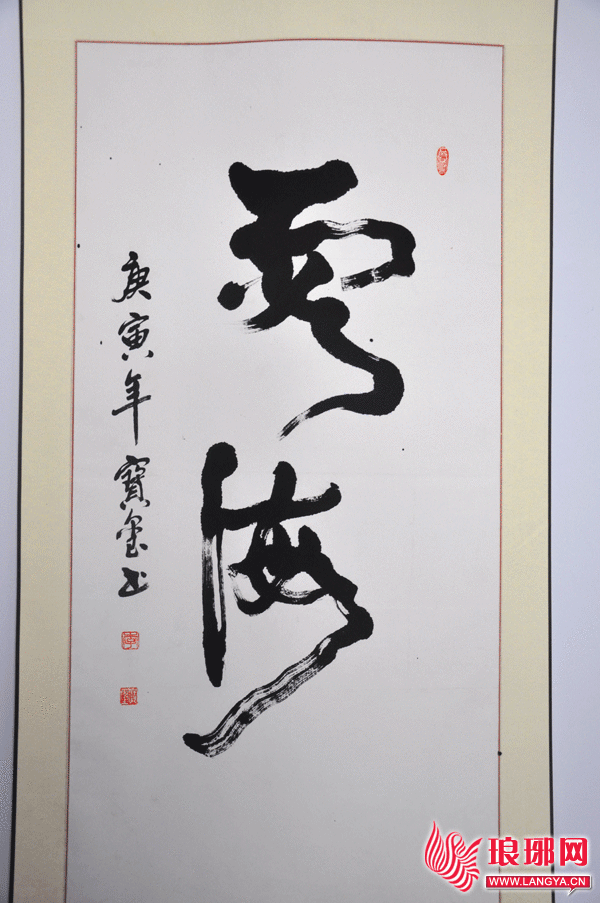 雲海
庚寅年寶玺书
琅琊网
WWW.LANGYA.CN